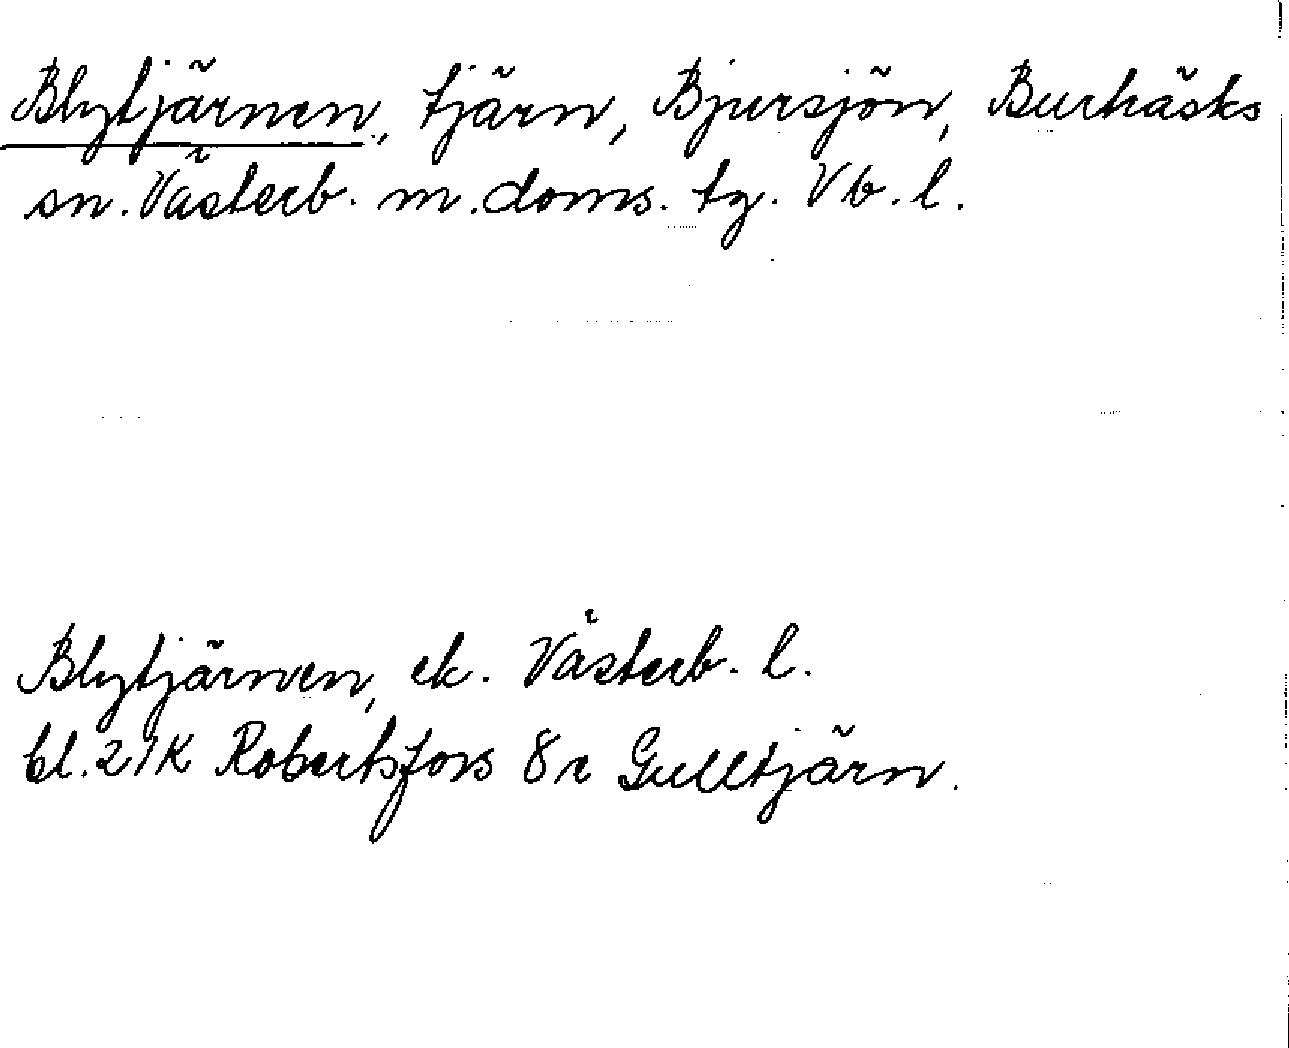 Blytjärnen, tjärn, Bjursjön, Burträsks
sn. Västerb. m. doms. tg. Vb. l.
Blytjärnen, ek. Västerb. l.
bl. 21K Robertsfors 8 c Gulltjärn.